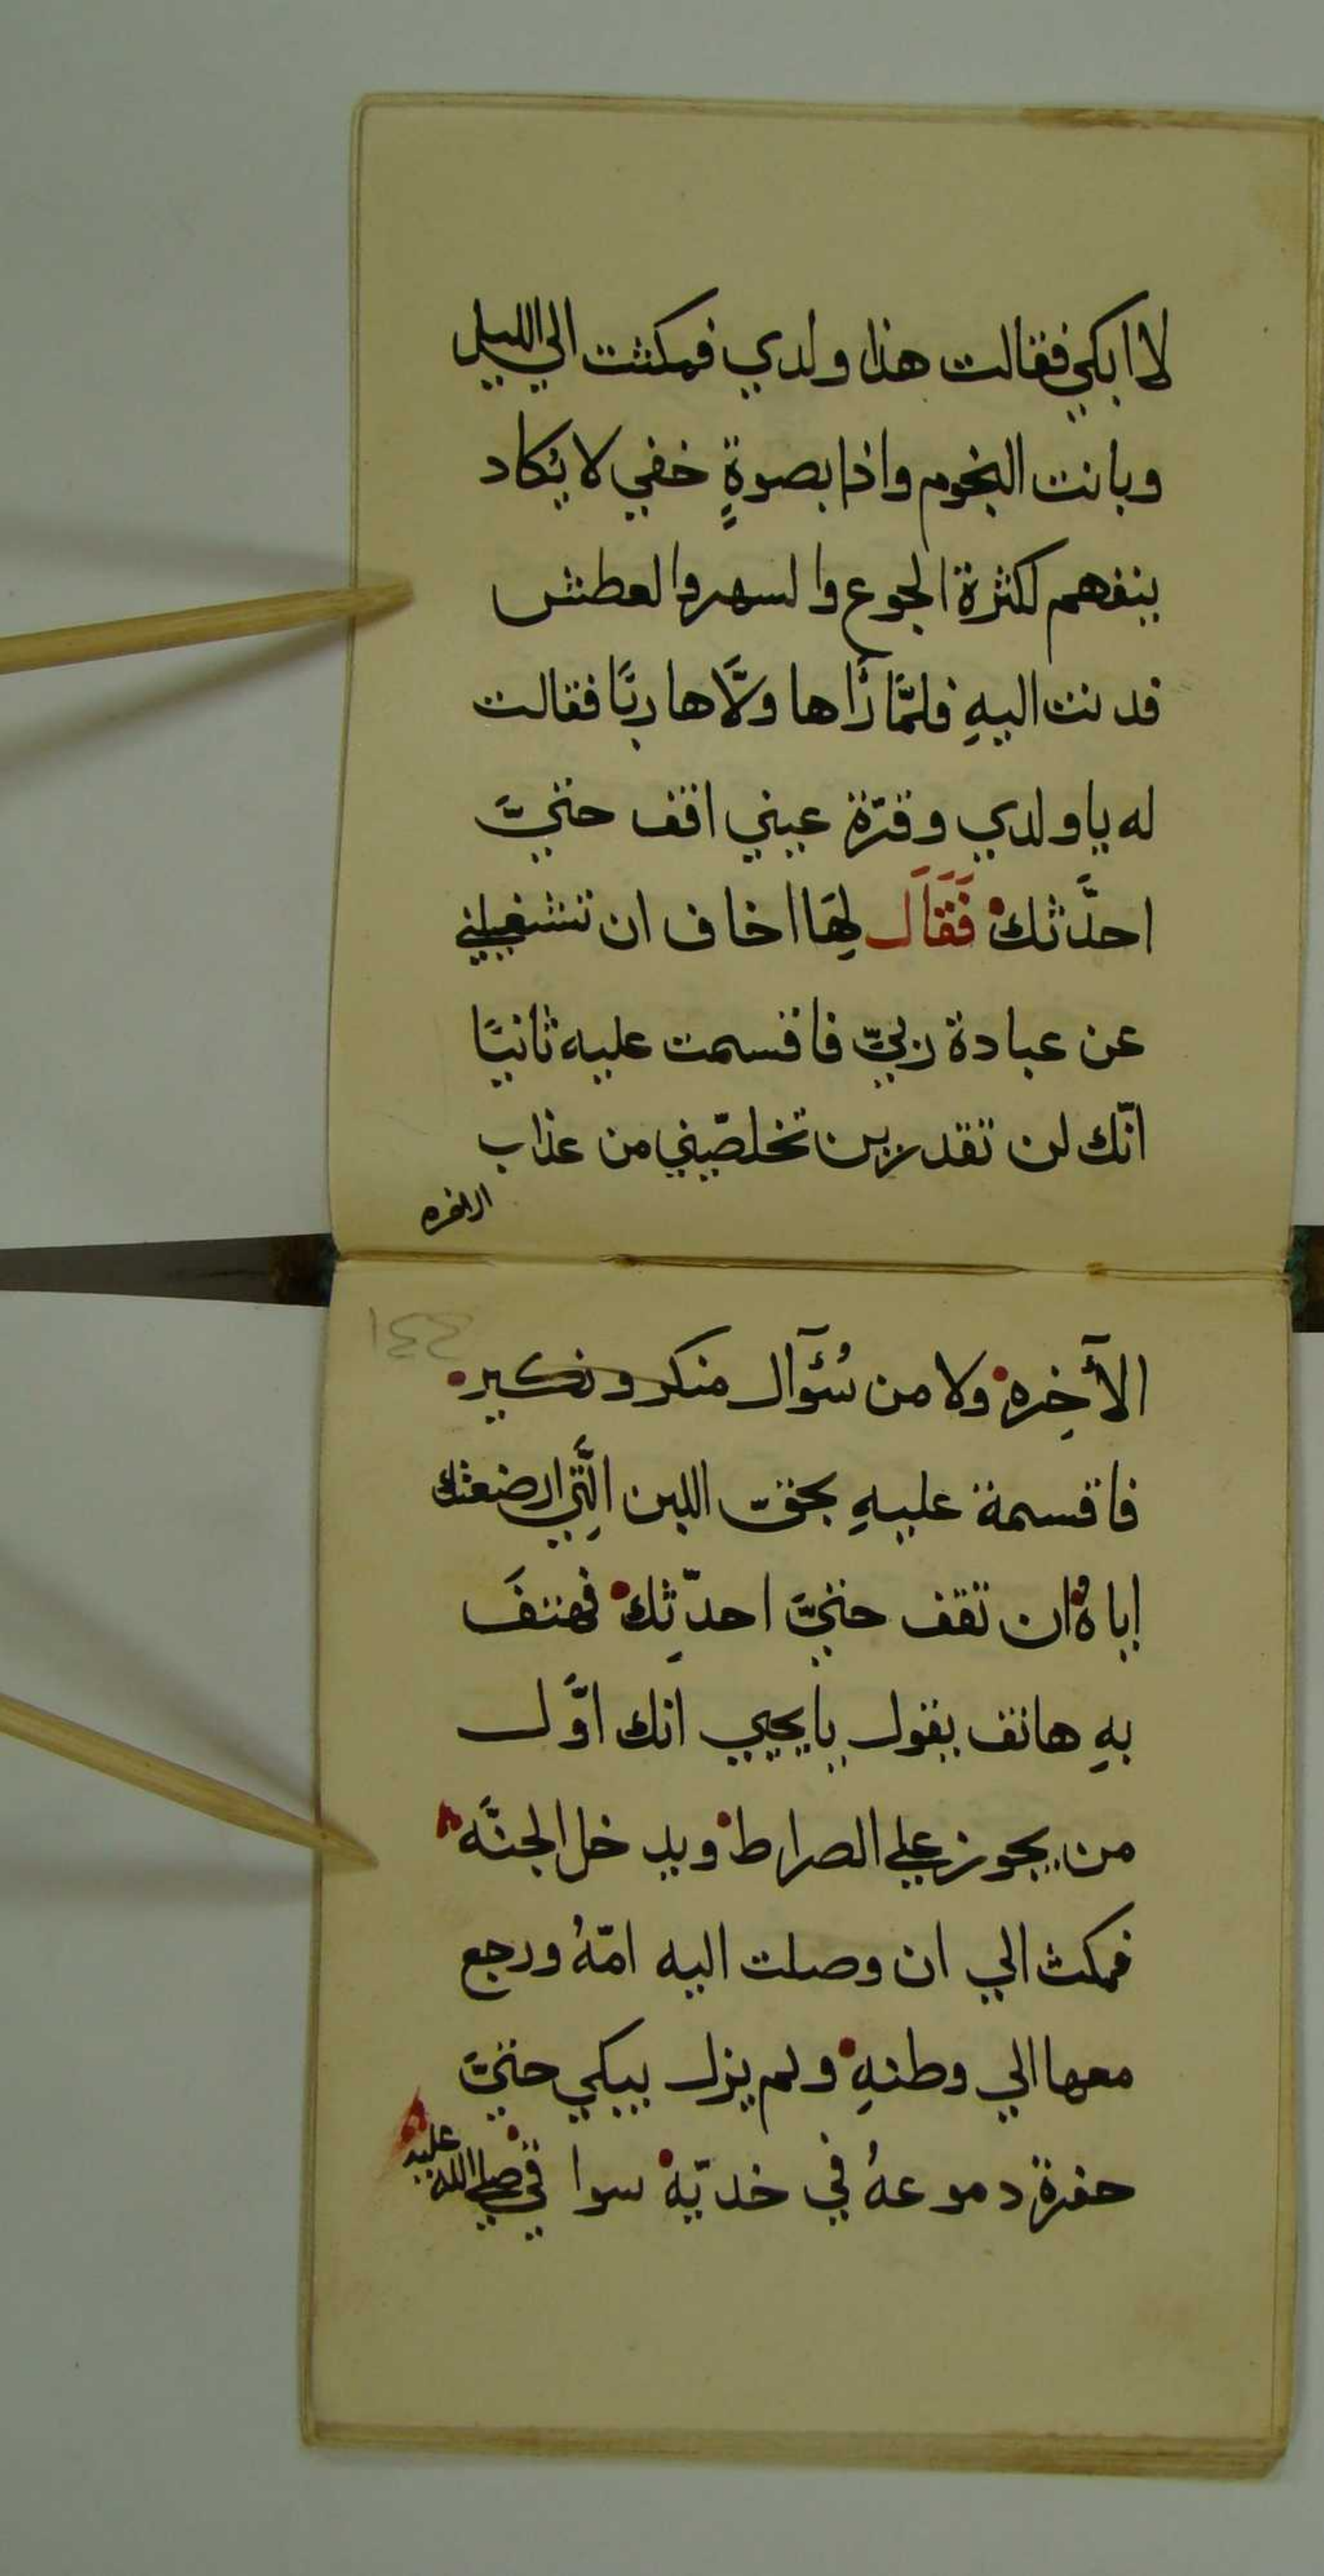 لا ابكي فقالت هذا ولدي فمكثت الي الليل
وبانت النجوم واذا بصوةٍ خفي لا يُكاد
ينفهم لكثرة الجوع والسهر والعطش
فدنت اليهِ فلمَّا رَاها ولَّاها ربًا فقالت
له يا ولدي وقرّة عيني اقف حتيَّ
احدَّثك فَقَالَ لِهَا اخاف ان تشغيلني
عن عبادة ربيّ فاقسمت عليه ثانيًا
انّك لن تقدرين تخلصّيني من عذاب
الاخره
١٤٤
الأَخِره ولا من سُئوآل منكر ونكير
فاقسمة عليهِ بحقّ اللبن الَّتِي ارضعتك
اياهُ ان تقف حتيَّ احدّثِك فهتفَ
بهِ هاتف يقول يا يحيي انك اوَّل
من يجوز علي الصراط ويدخل الجنَّه
فمكث الي ان وصلت اليه امّهُ ورجع
معها الي وطنهِ ولم يزل يبكي حتيَّ
حفرة دموعهُ في خديّه سواقي صلي الله عليه